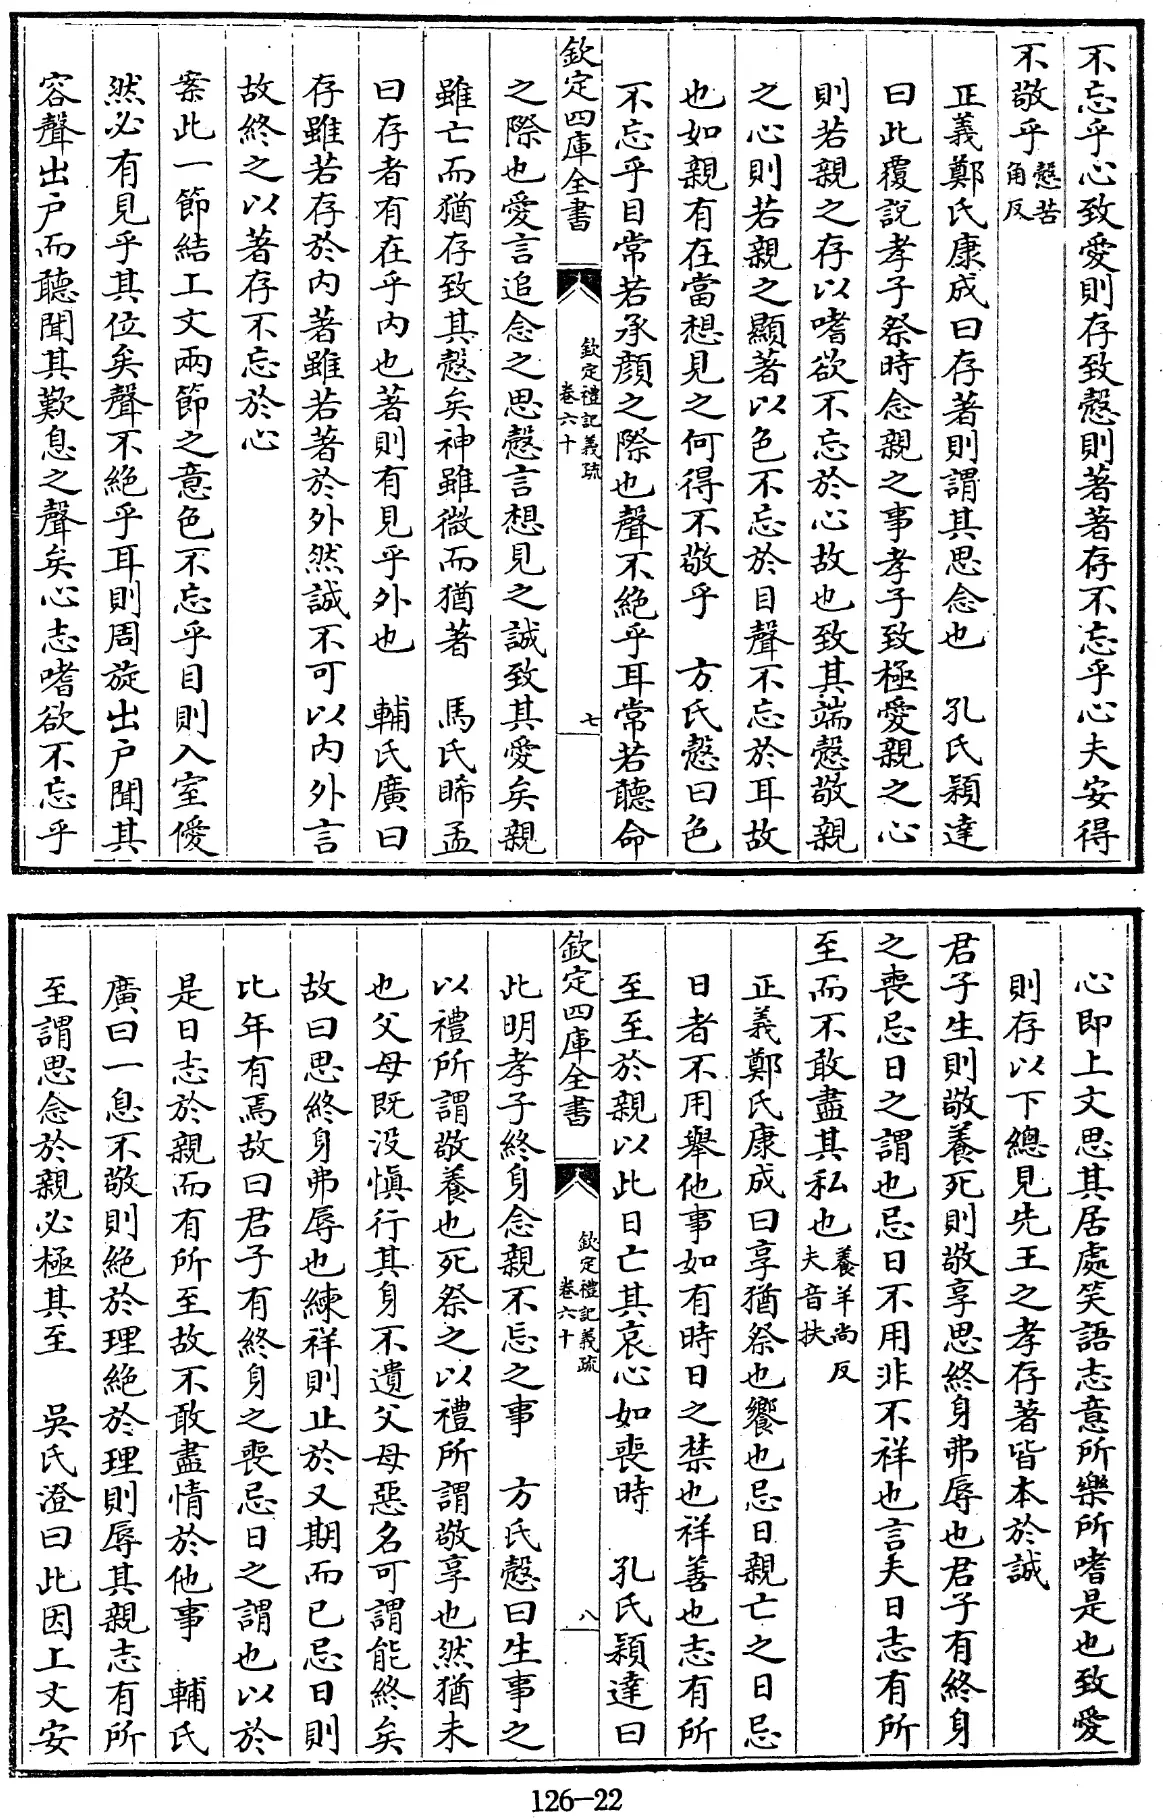 不忘乎心致愛則存致慤則著著存不忘乎心夫安得
不敬乎慤苦角反
正義鄭氏康成曰存著則謂其思念也　孔氏穎達
曰此覆說孝子祭時念親之事孝子致極愛親之心
則若親之存以嗜欲不忘於心故也致其端慤敬親
之心則若親之顯著以色不忘於目聲不忘於耳故
也如親有在當想見之何得不敬乎　方氏慤曰色
不忘乎目常若承顏之際也聲不絶乎耳常若聽命
欽定四庫全書
欽定禮記義疏
卷六十
七
之際也愛言追念之思慤言想見之誠致其愛矣親
雖亡而猶存致其慤矣神雖微而猶著　馬氏睎孟
曰存者有在乎内也著則有見乎外也　輔氏廣曰
存雖若存於内著雖若著於外然誠不可以内外言
故終之以著存不忘於心
案此一節結上文兩節之意色不忘乎目則入室僾
然必有見乎其位矣聲不絶乎耳則周旋出户聞其
容聲出户而聽聞其歎息之聲矣心志嗜欲不忘乎
心即上文思其居處笑語志意所樂所嗜是也致愛
則存以下總見先王之孝存著皆本於誠
君子生則敬養死則敬享思終身弗辱也君子有終身
之喪忌日之謂也忌日不用非不祥也言夫日志有所
至而不敢盡其私也養羊尚反夫音扶
正義鄭氏康成曰享猶祭也饗也忌日親亡之日忌
日者不用舉他事如有時日之禁也祥善也志有所
至至於親以此日亡其哀心如喪時　孔氏穎達曰
欽定四庫全書
欽定禮記義疏
卷六十
八
此明孝子終身念親不忘之事　方氏慤曰生事之
以禮所謂敬養也死祭之以禮所謂敬享也然猶未
也父母既没慎行其身不遺父母惡名可謂能終矣
故曰思終身弗辱也練祥則止於又期而已忌日則
比年有焉故曰君子有終身之喪忌日之謂也以於
是日志於親而有所至故不敢盡情於他事　輔氏
廣曰一息不敬則絶於理絶於理則辱其親志有所
至謂思念於親必極其至　吳氏澄曰此因上文安
126-22